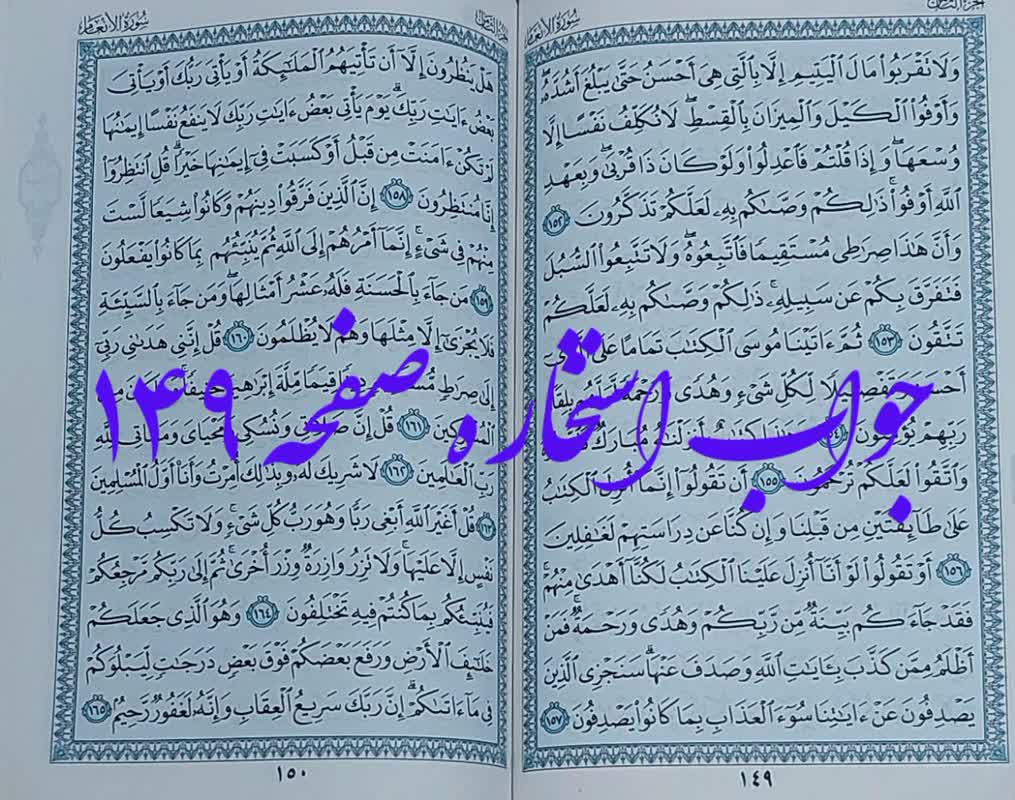 سُورَةُ الأَنْعَام
وَلَا تَقْرَبُوا۟ مَالَ ٱلْيَتِيمِ إِلَّا بِٱلَّتِى هِىَ أَحْسَنُ حَتَّىٰ يَبْلُغَ أَشُدَّهُۥ
وَأَوْفُوا۟ ٱلْكَيْلَ وَٱلْمِيزَانَ بِٱلْقِسْطِ لَا نُكَلِّفُ نَفْسًا إِلَّا
وُسْعَهَا وَإِذَا قُلْتُمْ فَٱعْدِلُوا۟ وَلَوْ كَانَ ذَا قُرْبَىٰ وَبِعَهْدِ
ٱللَّهِ أَوْفُوا۟ ذَٰلِكُمْ وَصَّىٰكُم بِهِۦ لَعَلَّكُمْ تَذَكَّرُونَ ١٥٢
وَأَنَّ هَٰذَا صِرَٰطِى مُسْتَقِيمًا فَٱتَّبِعُوهُ وَلَا تَتَّبِعُوا۟ ٱلسُّبُلَ
فَتَفَرَّقَ بِكُمْ عَن سَبِيلِهِۦ ذَٰلِكُمْ وَصَّىٰكُم بِهِۦ لَعَلَّكُمْ
تَتَّقُونَ ١٥٣ ثُمَّ ءَاتَيْنَا مُوسَى ٱلْكِتَٰبَ تَمَامًا عَلَى
لِّكُلِّ شَىْءٍ وَهُدًى وَرَحْمَةً لَّعَلَّهُم بِلِقَآءِ
رَبِّهِمْ يُؤْمِنُونَ أَنزَلْنَٰهُ مُبَارَكٌ
وَٱتَّقُوا۟ لَعَلَّكُمْ تُرْحَمُونَ ١٥٥ أَن تَقُولُوٓا۟ إِنَّمَآ أُنزِلَ ٱلْكِتَٰبُ
عَلَىٰ طَآئِفَتَيْنِ مِن قَبْلِنَا وَإِن كُنَّا عَن دِرَاسَتِهِمْ لَغَٰفِلِينَ
١٥٦ أَوْ تَقُولُوا۟ لَوْ أَنَّآ أُنزِلَ عَلَيْنَا ٱلْكِتَٰبُ لَكُنَّآ أَهْدَىٰ مِنْهُمْ
فَقَدْ جَآءَكُم بَيِّنَةٌ مِّن رَّبِّكُمْ وَهُدًى وَرَحْمَةٌ فَمَنْ
أَظْلَمُ مِمَّن كَذَّبَ بِـَٔايَٰتِ ٱللَّهِ وَصَدَفَ عَنْهَا سَنَجْزِى ٱلَّذِينَ
يَصْدِفُونَ عَنْ ءَايَٰتِنَا سُوٓءَ ٱلْعَذَابِ بِمَا كَانُوا۟ يَصْدِفُونَ ١٥٧
١٤٩
سُورَةُ الأَنْعَام
هَلْ يَنظُرُونَ إِلَّآ أَن تَأْتِيَهُمُ ٱلْمَلَٰٓئِكَةُ أَوْ يَأْتِىَ رَبُّكَ أَوْ يَأْتِىَ
بَعْضُ ءَايَٰتِ رَبِّكَ يَوْمَ يَأْتِى بَعْضُ ءَايَٰتِ رَبِّكَ لَا يَنفَعُ نَفْسًا إِيمَٰنُهَا
لَمْ تَكُنْ ءَامَنَتْ مِن قَبْلُ أَوْ كَسَبَتْ فِىٓ إِيمَٰنِهَا خَيْرًا قُلِ ٱنتَظِرُوٓا۟
إِنَّا مُنتَظِرُونَ ١٥٨ إِنَّ ٱلَّذِينَ فَرَّقُوا۟ دِينَهُمْ وَكَانُوا۟ شِيَعًا لَّسْتَ
مِنْهُمْ فِى شَىْءٍ إِنَّمَآ أَمْرُهُمْ إِلَى ٱللَّهِ ثُمَّ يُنَبِّئُهُم بِمَا كَانُوا۟ يَفْعَلُونَ
١٥٩ مَن جَآءَ بِٱلْحَسَنَةِ فَلَهُۥ عَشْرُ أَمْثَالِهَا وَمَن جَآءَ بِٱلسَّيِّئَةِ
فَلَا يُجْزَىٰٓ إِلَّا مِثْلَهَا وَهُمْ لَا يُظْلَمُونَ ١٦٠ قُلْ إِنَّنِى هَدَىٰنِى رَبِّىٓ
إِلَىٰ صِرَٰطٍ قِيَمًا مِّلَّةَ إِبْرَٰهِيمَ
١٦١ قُلْ إِنَّ صَلَاتِى وَنُسُكِى وَمَحْيَاىَ وَمَمَاتِى لِلَّهِ
رَبِّ ٱلْعَٰلَمِينَ ١٦٢ لَا شَرِيكَ لَهُۥ وَبِذَٰلِكَ أُمِرْتُ وَأَنَا۠ أَوَّلُ ٱلْمُسْلِمِينَ
١٦٣ قُلْ أَغَيْرَ ٱللَّهِ أَبْغِى رَبًّا وَهُوَ رَبُّ كُلِّ شَىْءٍ وَلَا تَكْسِبُ كُلُّ
نَفْسٍ إِلَّا عَلَيْهَا وَلَا تَزِرُ وَازِرَةٌ وِزْرَ أُخْرَىٰ ثُمَّ إِلَىٰ رَبِّكُم مَّرْجِعُكُمْ
فَيُنَبِّئُكُم بِمَا كُنتُمْ فِيهِ تَخْتَلِفُونَ ١٦٤ وَهُوَ ٱلَّذِى جَعَلَكُمْ
خَلَٰٓئِفَ ٱلْأَرْضِ وَرَفَعَ بَعْضَكُمْ فَوْقَ بَعْضٍ دَرَجَٰتٍ لِّيَبْلُوَكُمْ
فِى مَآ ءَاتَىٰكُمْ إِنَّ رَبَّكَ سَرِيعُ ٱلْعِقَابِ وَإِنَّهُۥ لَغَفُورٌ رَّحِيمٌ ١٦٥
١٥٠
جواب استخاره صفحه ۱۴۹